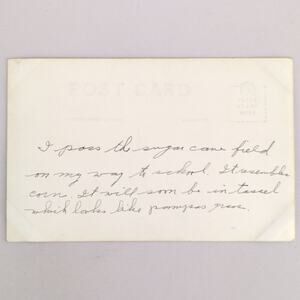 POST CARD
PLACE
STAMP
HERE
I pass the sugar cane field
on my way to school. It resembles
corn. It will soon be in tassel
which looks like pampas grass.